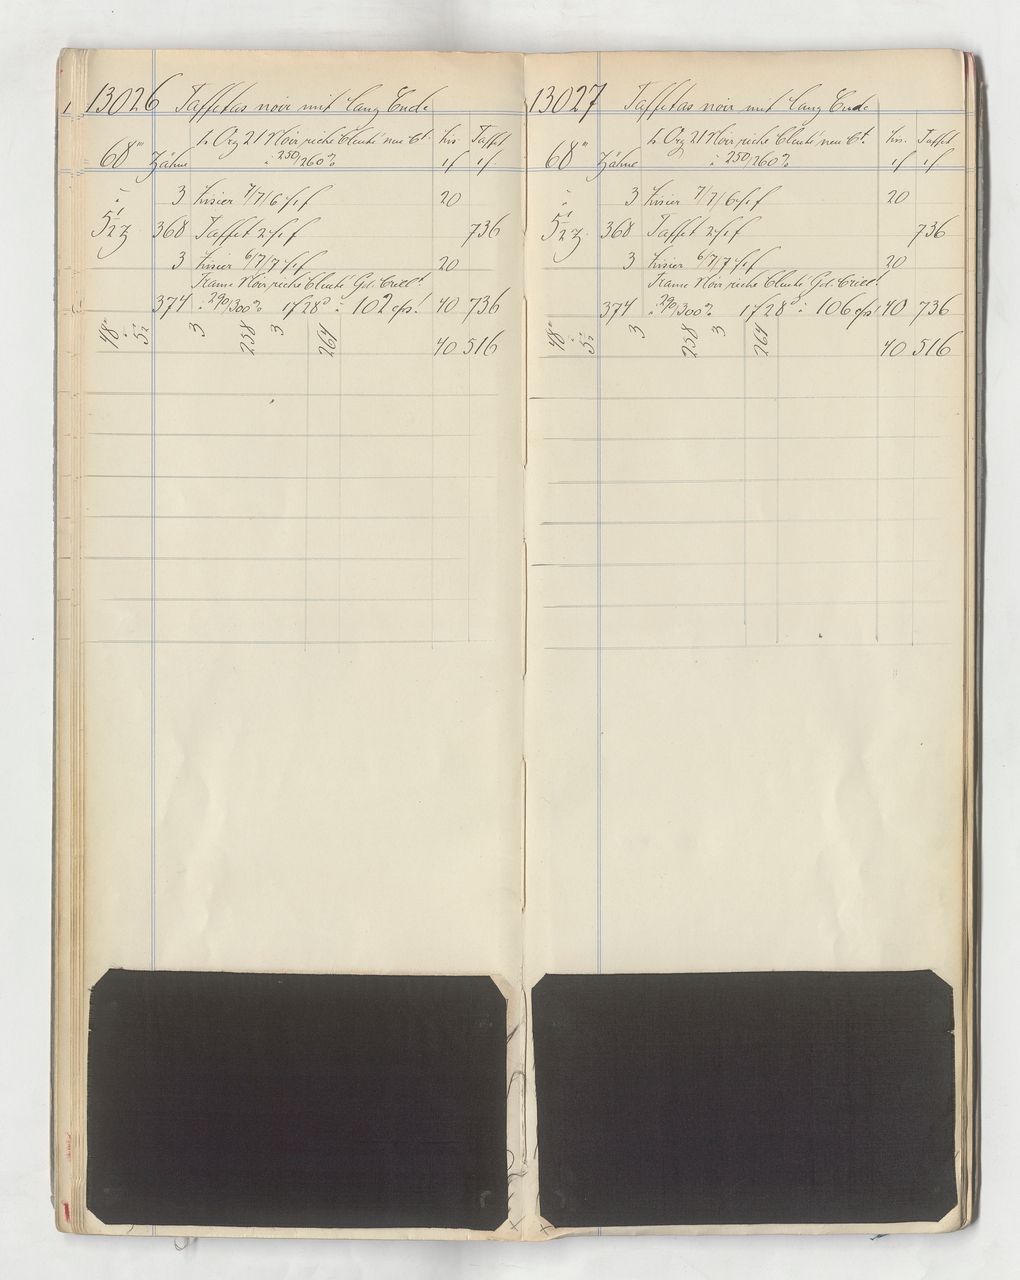 13026 Taffetas noir mit lang Ende
h Org 21 Noir riche cleuté neu Ct. Lis. Taffet
68''' Zähne à 250/260% 1f 1f
3 Lisier 7/7/6 f. 1 f 20
5 1/2 z. 368 Taffet 2 f. 1 f 736
3 Lisier 6/7/7 f. 1 f 20
Trame Noir riche cleuté
374 à 290/300% 1f 28 à 102 40 736
48 5 1/2 3 258 3 264 40 516
13027 Taffetas noir mit lang Ende
h Org 21 Noir riche cleuté neu Ct. Lis. Taffet
68''' Zähne à 250/260% 1f 1f
3 Lisier 7/7/6 f. 1 f 20
5 1/2 z. 368 Taffet 2 f. 1 f 736
3 Lisier 6/7/7 f. 1 f 20
Trame Noir riche cleuté
374 à 290/300% 1f 28 à 106 40 736
48 5 1/2 3 258 3 264 40 516